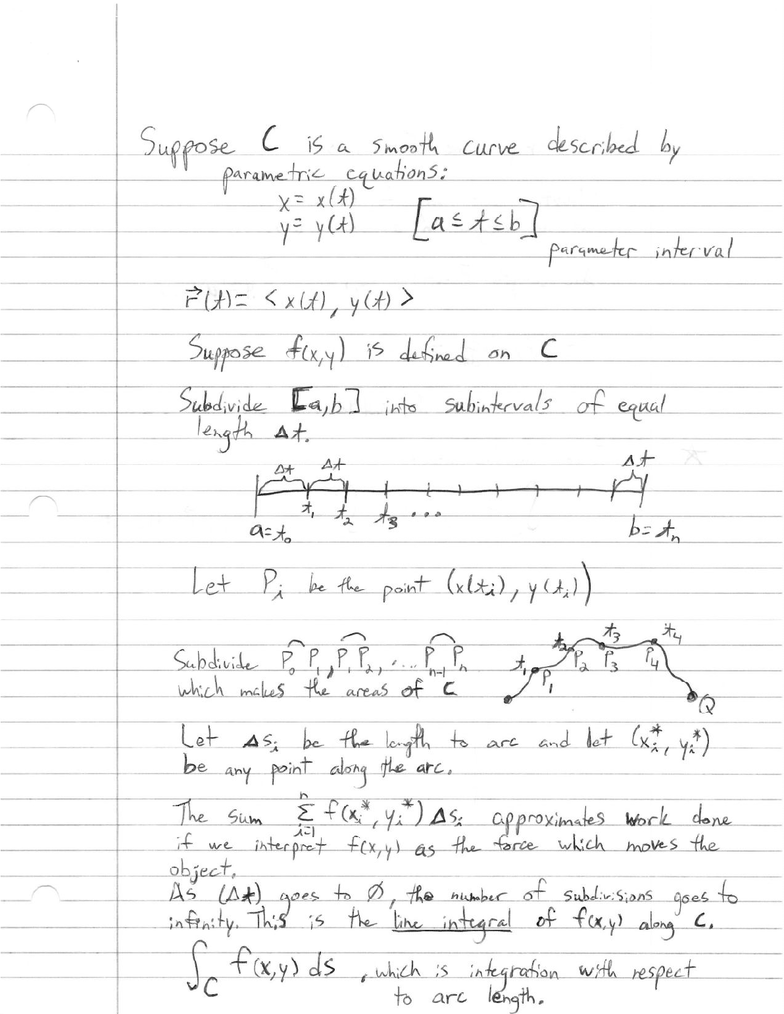 Suppose C is a smooth curve described by
parametric equations:
x = x(t)
y = y(t) [a ≤ t ≤ b]
parameter interval
r⃗(t) = < x(t), y(t) >
Suppose f(x,y) is defined on C
Subdivide [a,b] into subintervals of equal
length Δt.
Δt Δt Δt
t₁ t₂ t₃ ...
a = t₀ b = tₙ
Let Pᵢ be the point (x(tᵢ), y(tᵢ))
t₁ t₂ t₃ t₄
P₁ P₂ P₃ P₄ Q
Subdivide P₀P₁, P₁P₂, .... Pₙ₋₁Pₙ
which makes the areas of C
Let Δsᵢ be the length to arc and let (xᵢ*, yᵢ*)
be any point along the arc.
The sum Σⁿᵢ₌₁ f(xᵢ*, yᵢ*) Δsᵢ approximates work done
if we interpret f(x,y) as the force which moves the
object.
As (Δt) goes to Ø, the number of subdivisions goes to
infinity. This is the line integral of f(x,y) along C.
∫_C f(x,y) ds, which is integration with respect
to arc length.